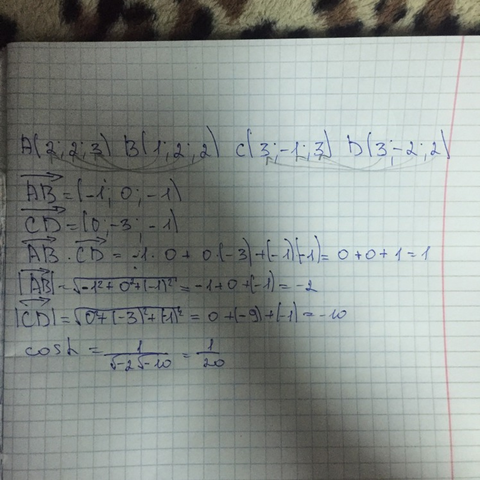 A(2; 2; 3) B(1; 2; 2) C(3; -1; 3) D(3; -2; 2)
AB = (-1; 0; -1)
CD = (0; -3; -1)
AB · CD = -1 · 0 + 0 · (-3) + (-1)(-1) = 0 + 0 + 1 = 1
|AB| = √-1² + 0² + (-1)² = -1 + 0 + (-1) = -2
|CD| = √0² + (-3)² + (-1)² = 0 + (-9) + (-1) = -10
cos L = 1/√-2√-10 = 1/20